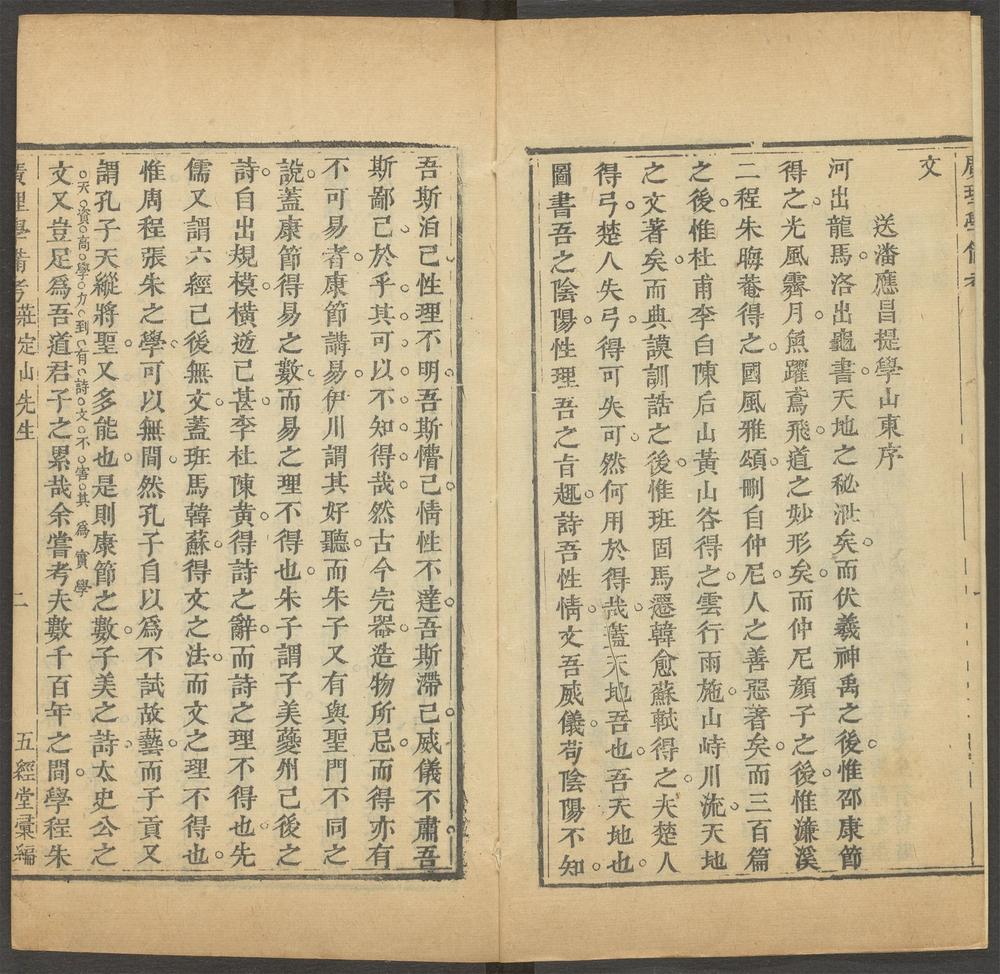 廣理學備考
文
送潘應昌提學山東序
河出龍馬洛出龜書天地之秘泄矣而伏羲神禹之後惟邵康節
得之光風霽月魚躍鳶飛道之妙形矣而仲尼顏子之後惟濂溪
二程朱晦菴得之國風雅頌刪自仲尼人之善惡著矣而三百篇
之後惟杜甫李白陳后山黃山谷得之雲行雨施山峙川流天地
之文著矣而典謨訓誥之後惟班固馬遷韓愈蘇軾得之夫楚人
得弓楚人失弓得可失可然何用於得哉蓋天地吾也吾天地也
圖書吾之陰陽性理吾之旨趣詩吾性情文吾威儀苟陰陽不知
吾斯泊已性理不明吾斯懵已情性不達吾斯滯已威儀不肅吾
斯鄙已於乎其可以不知得哉然古今完器造物所忌而得亦有
不可易者康節講易伊川謂其好聽而朱子又有與聖門不同之
說蓋康節得易之數而易之理不得也朱子謂子美夔州已後之
詩自出規模橫逆已甚李杜陳黃得詩之辭而詩之理不得也先
儒又謂六經已後無文蓋班馬韓蘇得文之法而文之理不得也
惟周程張朱之學可以無間然孔子自以爲不試故藝而子貢又
謂孔子天縱將聖又多能也是則康節之數子美之詩太史公之
天資高學力到有詩文不害其爲實學
文又豈足爲吾道君子之累哉余嘗考夫數千百年之間學程朱
廣理學備考 莊定山先生 二 五經堂彙編